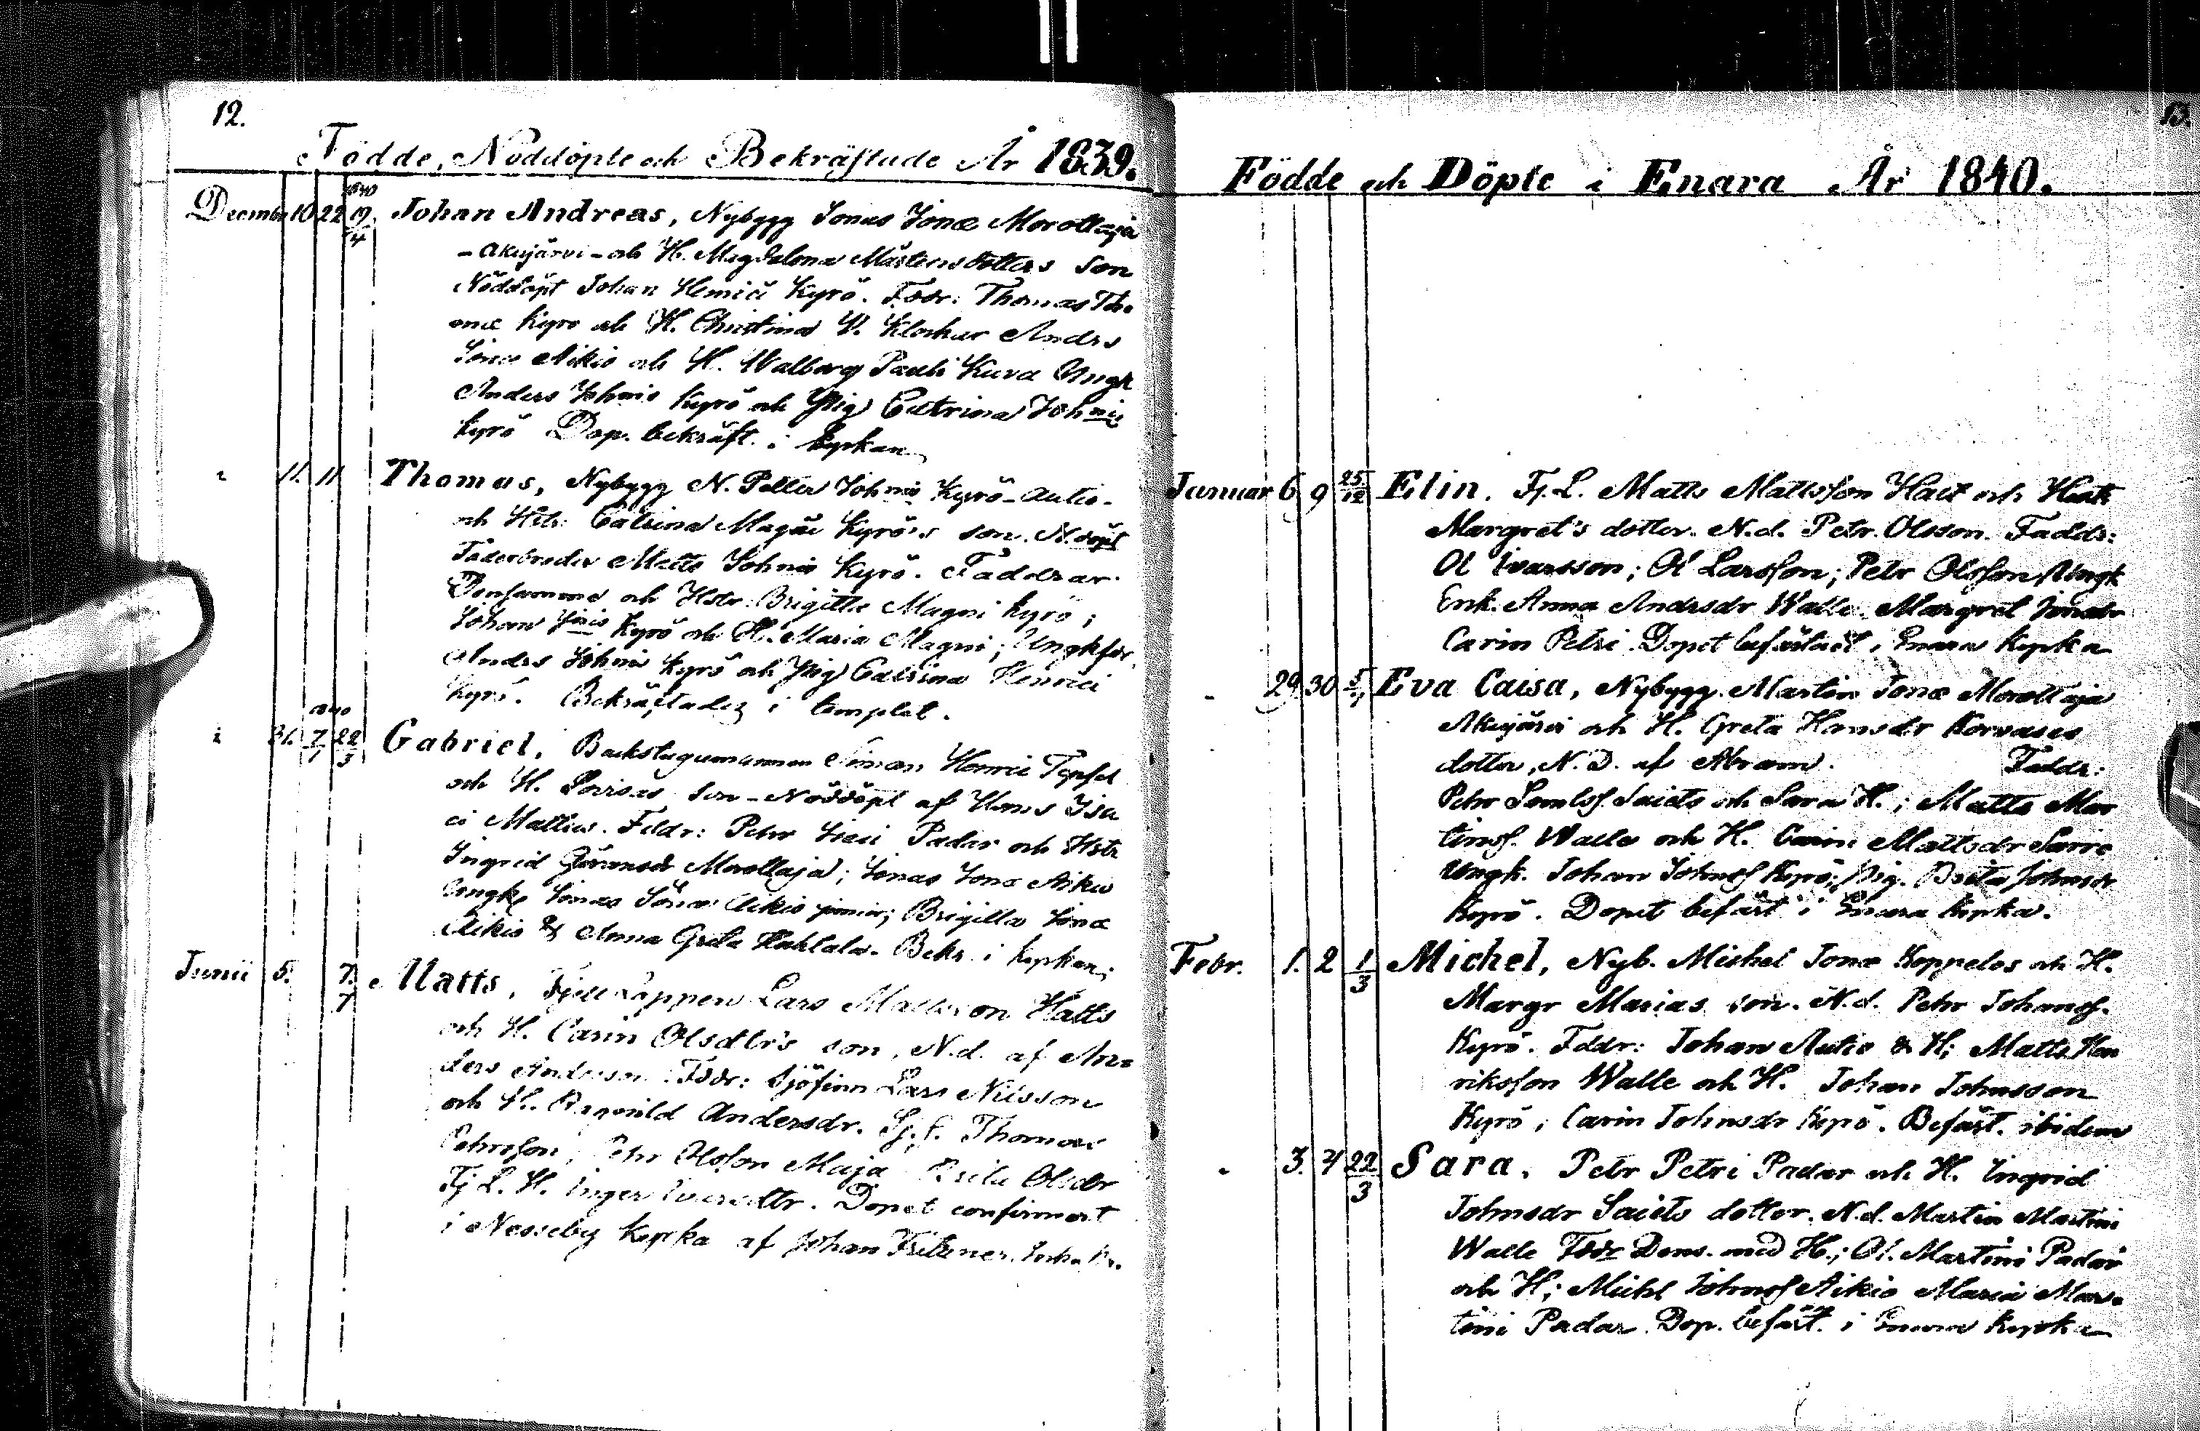 12.
Födde, Nöddöpte och Bekräftade År 1839.
1840
December 10 22 19/4 Johan Andreas, Nybygg Jonas Jonæ Morottaja
- Akujärvi - och H. Magdalena Mårtensdotters son
Nöddöpt Johan Henrici Kyrö. Fddr: Thomas Tho-
mæ Kyrö och H. Christina V. Klockar Andrs
Jonæ Aikio och H. Walborg Pauli Kuva Ungk
Anders Johnis Kyrö och Pig Catrina Johnis
Kyrö Dop. bekräft. i kyrkan
" 11. 11 Thomas, Nybygg N. Petter Johnis Kyrö - Autio -
och Hstr: Catrina Magni Kyrö's son. N. döpt
Faderbroder Matts Johnis Kyrö. Faddrar:
Densamme och Hstr Brigitta Magni Kyrö;
Johan Jönis Kyrö och H. Maria Magni; Ungkfor
Andrs Johnis Kyrö och Pig Catrina Henrici
Kyrö. Bekräftades i templet.
1840
" 31. 7/1 22/3 Gabriel, Backstugumannen Simon Henric Topfel
och H. Lovisas son - Nöddöpt af Hans Isa
ci Mattus. Fddr: Petr Isaci Padar och Hstr
Ingrid Göransdr Morottaja; Jonas Jonæ Aikio
Ungk Jonas Jonæ Aikio junior; Brigitta Jonæ
Aikio & Anna Greta Hahtala. Bekr. i kyrkan;
Junii 5. 7./7 Matts, Fjell Lappen Lars Mattsson Hatts
och H. Carin Olsdtr's son, N.d. af An-
ders Andersson. Fddr: Sjöfinn Lars Nilsson
och H. Ragnild Andersdr. Fj. L. Thomas
Pehrsson, Petr Olsson Maja Brita Olsdr
Fj L. H. Inger Ivarsdtr. Dopet confirmert
i Nesseby kyrka af Johan Fritzner
13.
Födde och Döpte i Enara År 1840.
Januar. 6 9 25/12 Elin. Fj. L. Matts Mattsson Hatt och Hust
Margret's dotter. N.d. Petr. Olsson. Faddr:
Ol Ivarsson; Ol Larsson; Petr Olsson Ungk
Enk. Anna Andrsdr Walle. Margret Jonsdr
Carin Petri. Dopet befästadt i Enara kyrka
" 29. 30 5/7 Eva Caisa, Nybygg. Martin Jonæ Morottaja
Akujärvi och H. Greta Hansdr Korvases
dotter, N. D. af Abram. Faddr:
Petr Samlss. Saiets och Sara H.; Matts Mar
tinss. Walle och H. Carin Mattsdr Sarre
Ungk. Johan Johnss Kyrö; Pig. Brita Johnsdr
Kyrö. Dopet befäst i Enara kyrka.
Febr. 1. 2 1/3 Michel, Nyb. Michel Jonæ Koppelos och H.
Margr Marias son. N.d. Petr Johanss.
Kyrö. Fddr: Johan Autio & H; Matts Hen
riksson Walle och H. Johan Johnsson
Kyrö, Carin Johnsdr Kyrö. Befäst. ibidem
" 3. 4 22/3 Sara, Petr Petri Padar och H. Ingrid
Johnsdr Saiets dotter. N.d. Martin Martini
Walle Fddr Dens. med H.; Ol. Martini Padar
och H; Michl Johnss Aikio Maria Mar-
tini Padar. Dop. befäst. i Enara kyrka